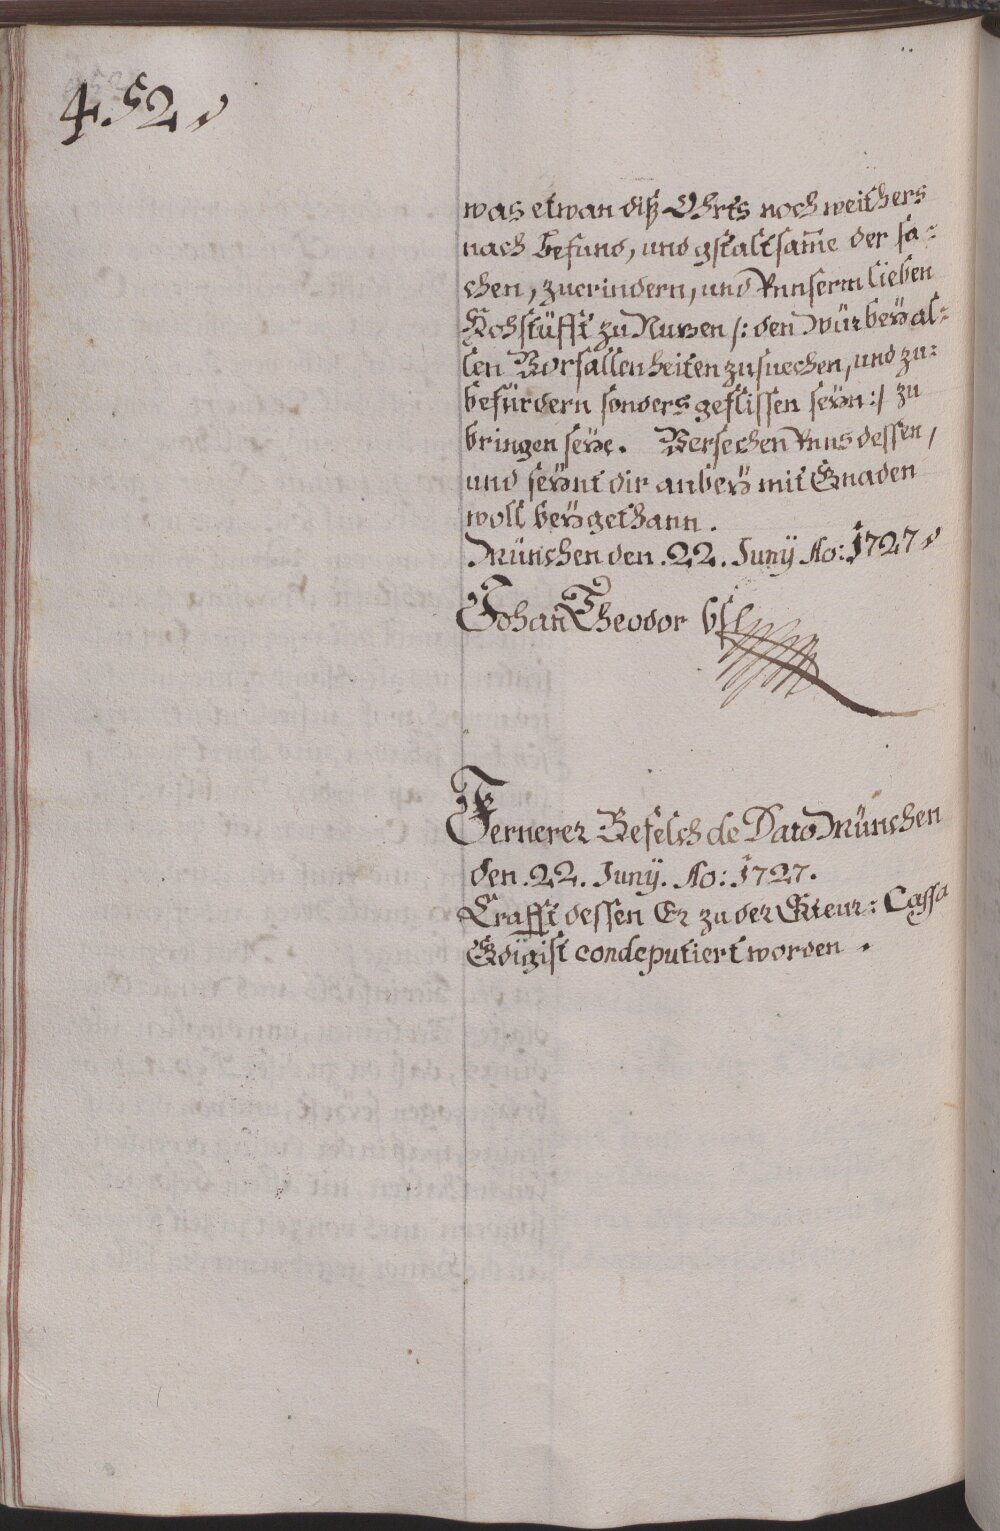 452
was etwan diß Ohrts noch weithers
nach befund, und gstaltsam̄e der sa=
chen, zuerindern, und Vnnserm lieben
Hochstüfft zu Nuzen /: den wür beÿ al=
len Vorfallenheiten zusuechen, und zu=
befürdern sonders geflissen seÿn :/ zu
bringen seÿe. Versechen Vnns dessen,
und seÿnt dir anbeÿ mit Gnaden
woll beÿgethann.
München den .22. Junÿ Ao: 1727
Johan Theodor
Fernerer Befelch de Dato München
den .22. Junÿ. Ao: 1727.
Crafft dessen Er zu der Steur: Cassa
Gdigist condeputiert worden.